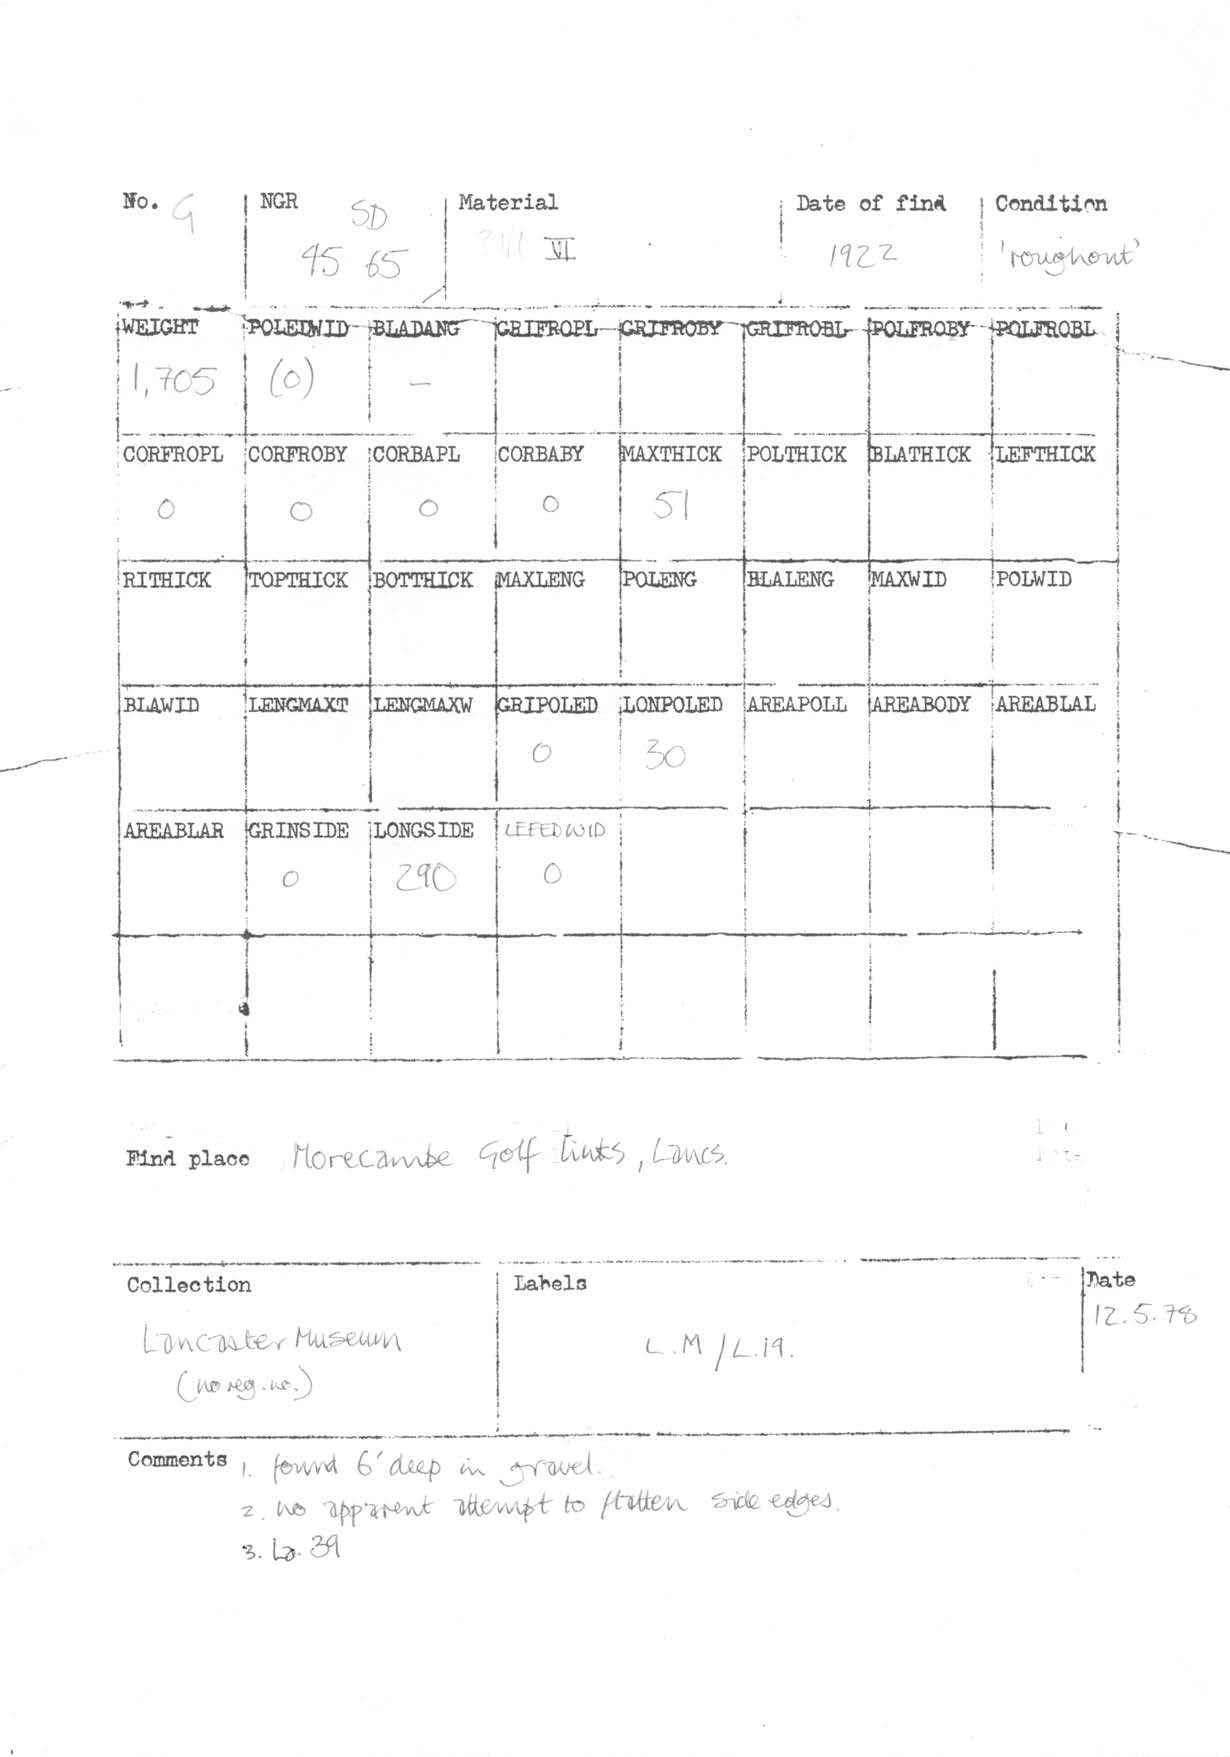 No. G NGR SD Material Date of find Condition
45 65 VI 1922 'roughout'
WEIGHT POLEDWID BLADANG GRIFROPL GRIFROBY GRIFROBL POLFROBY POLFROBL
1,705 (0) –
CORFROPL CORFROBY CORBAPL CORBABY MAXTHICK POLTHICK BLATHICK LEFTHICK
0 0 0 0 51
RITHICK TOPTHICK BOTTHICK MAXLENG POLENG BLALENG MAXWID POLWID
BLAWID LENGMAXT LENGMAXW GRIPOLED LONPOLED AREAPOLL AREABODY AREABLAL
0 30
AREABLAR GRINSIDE LONGSIDE LEFEDWID
0 290 0
Find place Morecambe Golf Links, Lancs.
Collection Labels Date
12.5.78
Lancaster Museum L.M/L.19.
(no reg. no.)
Comments 1. found 6' deep in gravel.
2. no apparent attempt to flatten side edges.
3. La. 39